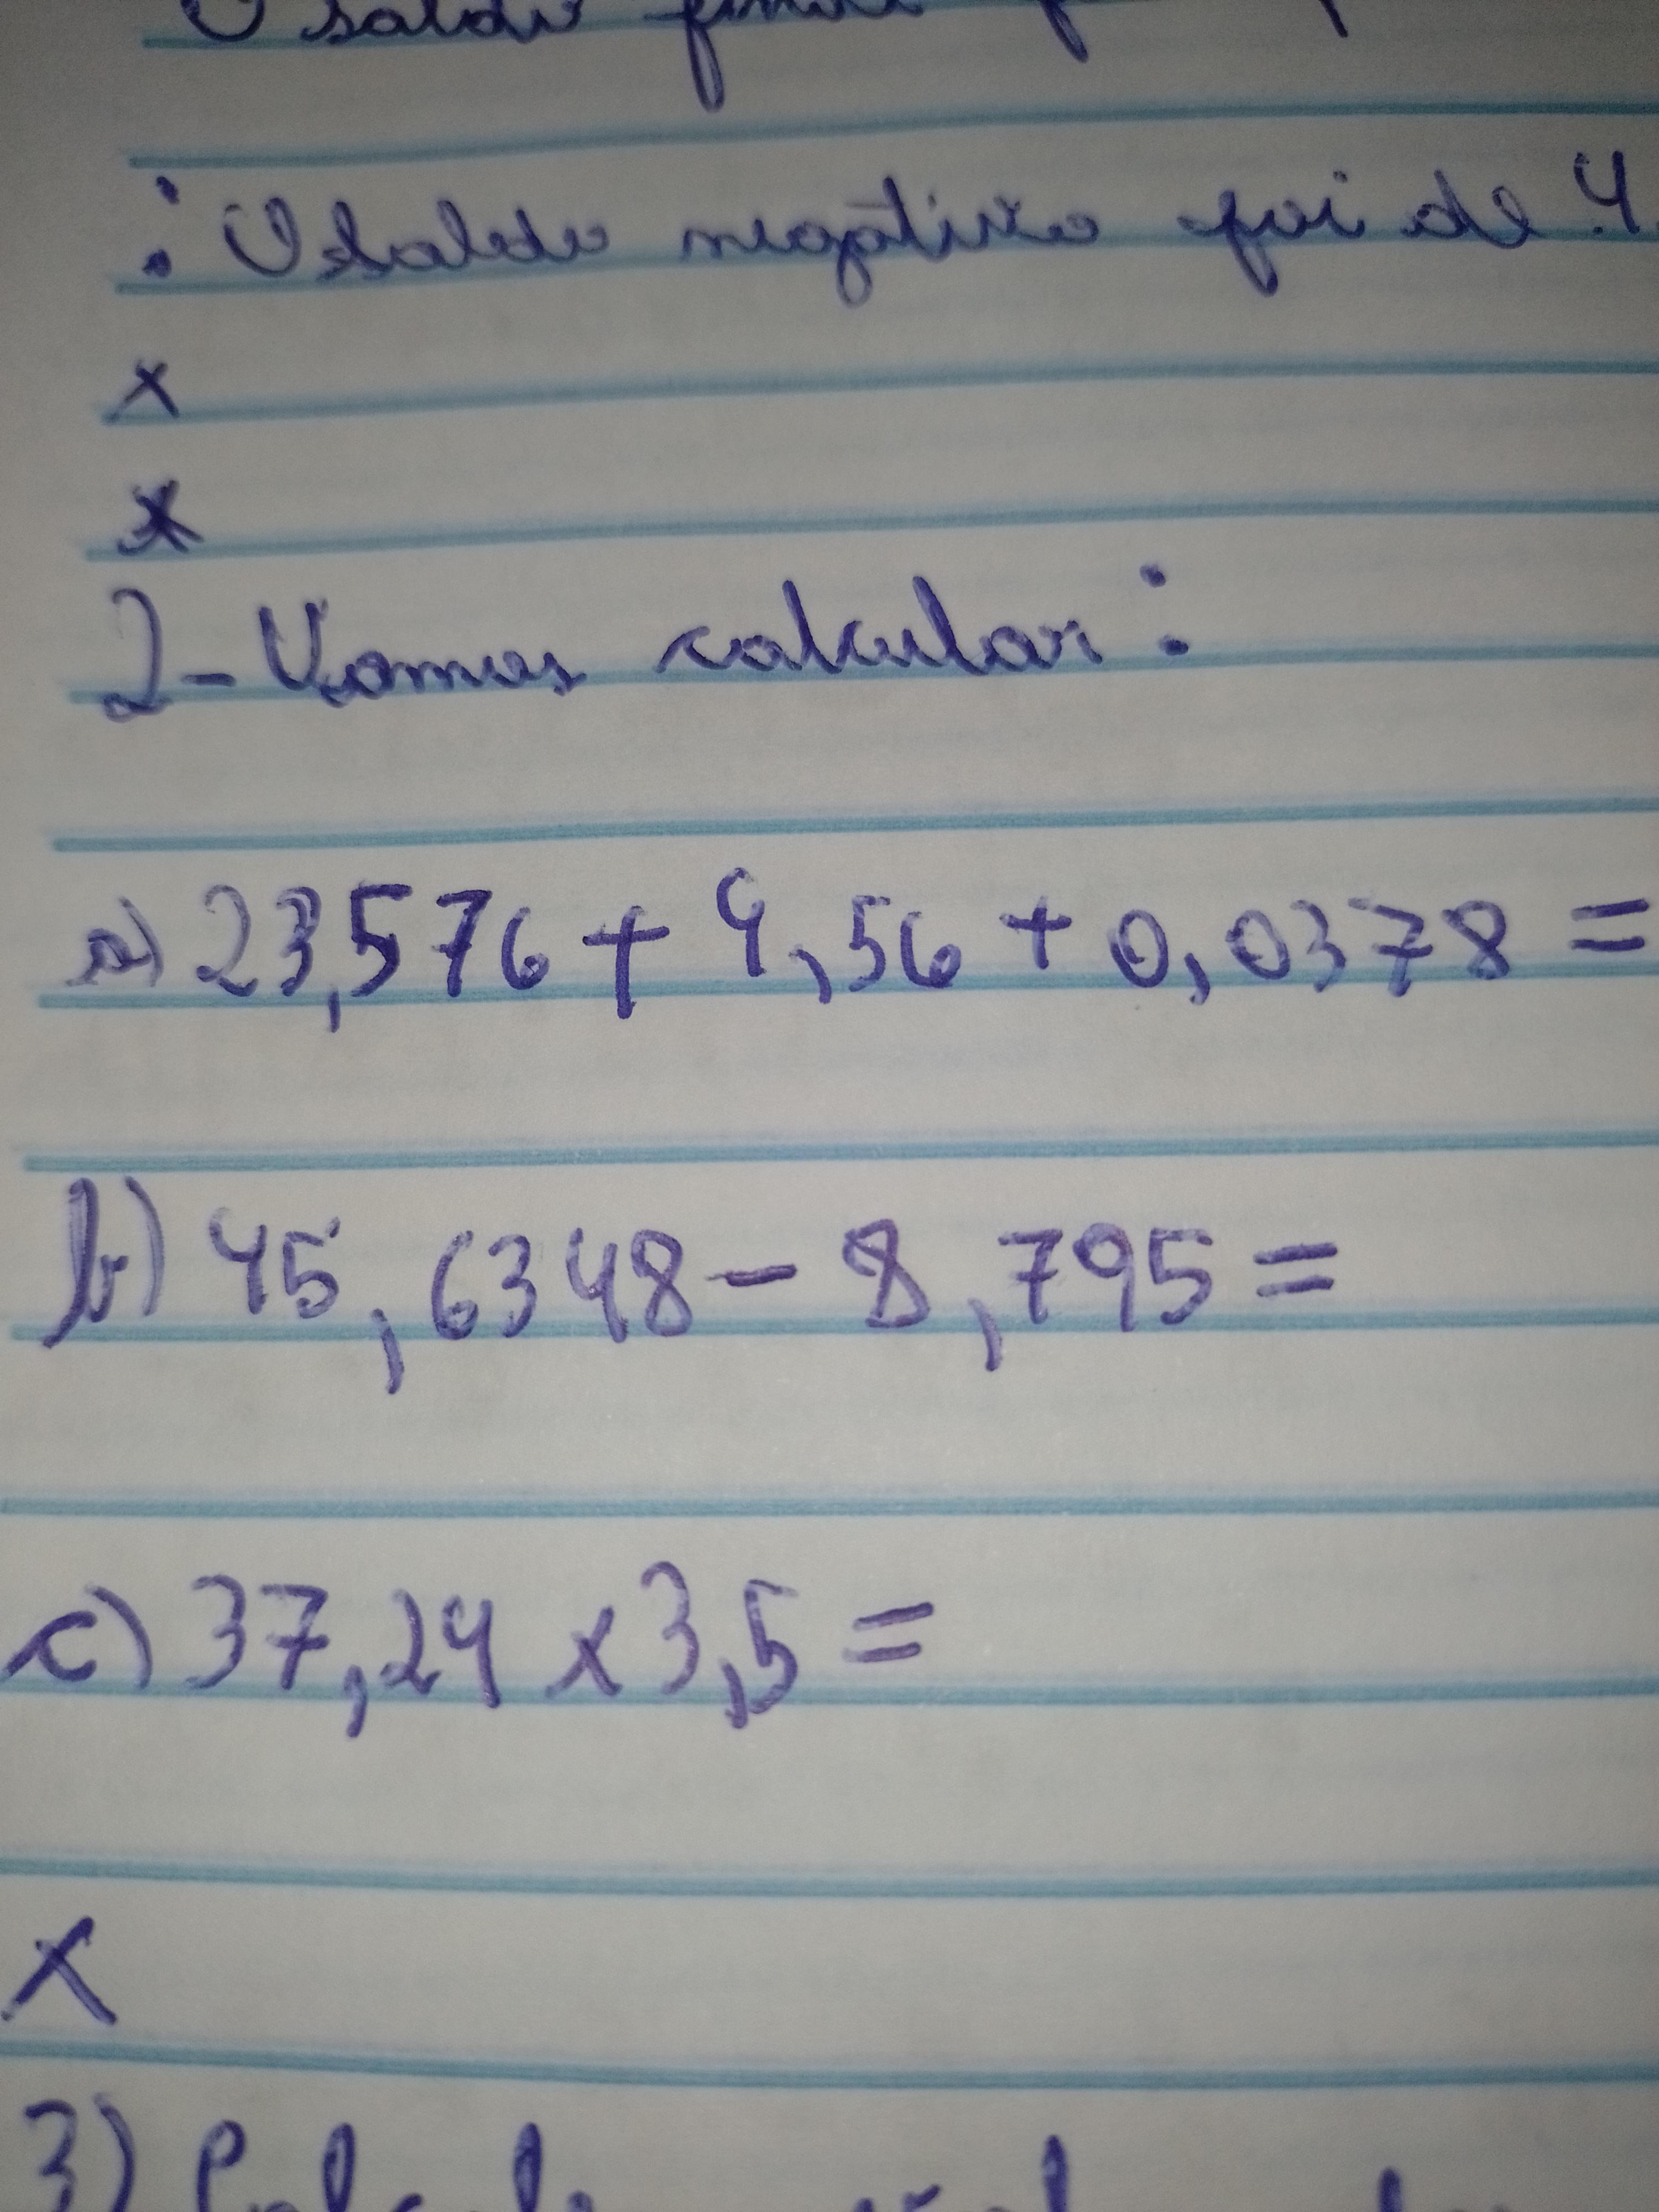 O saldo
: O saldo negativo foi de 4
x
x
2- Vamos calcular:
a) 23,576 + 4,56 + 0,0378 =
b) 45,6348 - 8,795 =
c) 37,24 x 3,5 =
x
3)